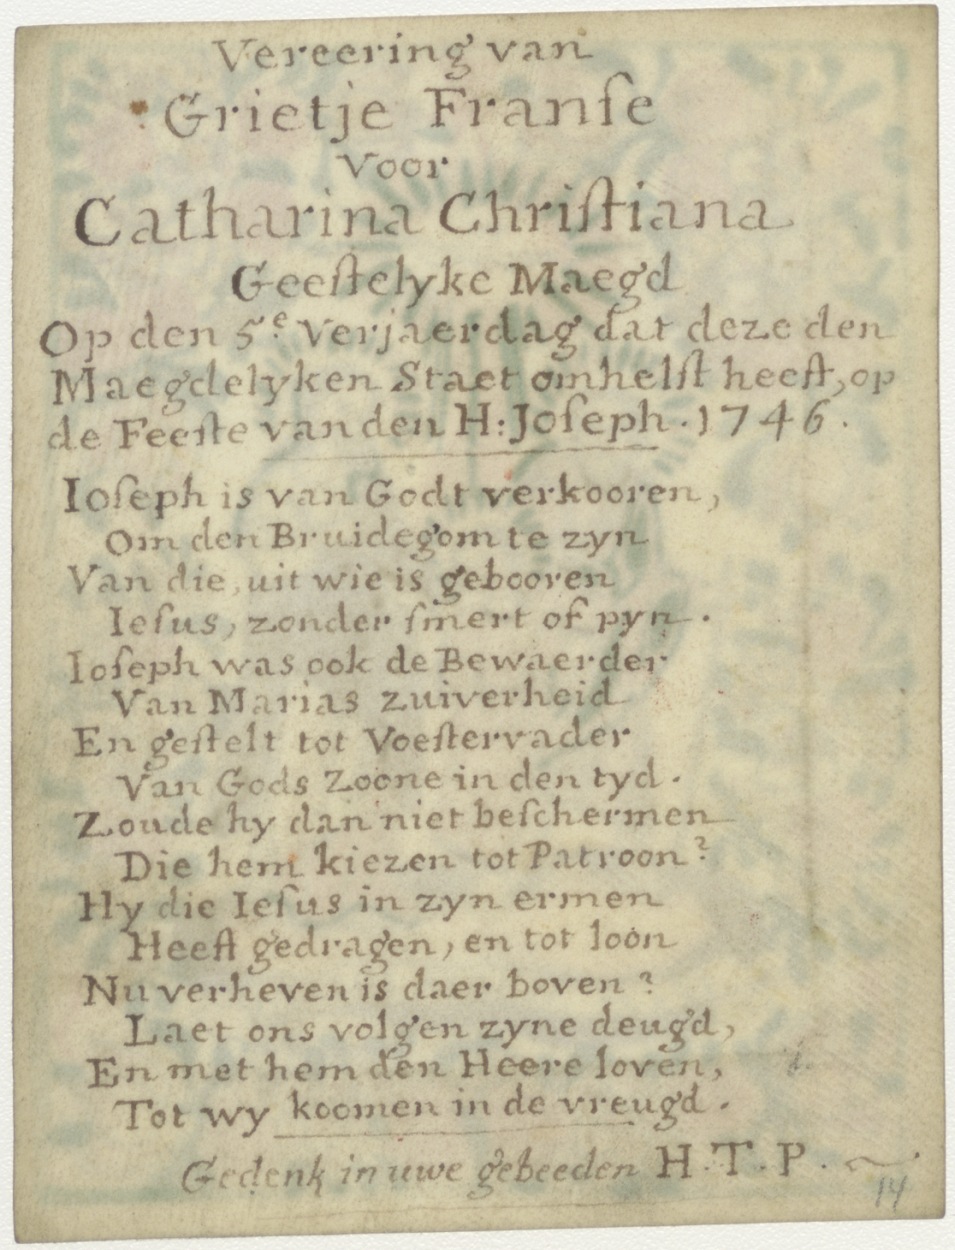 Vereering van
Grietje Franſe
Voor
Catharina Chriſtiana
Geeſtelyke Maegd
Op den 5e Verjaerdag dat deze den
Maegdelyken Staet omhelſt heeſt, op
de Feeſte van den H: Joſeph. 1746.
Ioſeph is van Godt verkooren,
Om den Bruidegom te zyn
Van die, uit wie is gebooren
Ieſus, zonder ſmert of pyn.
Ioſeph was ook de Bewaerder
Van Marias zuiverheid
En geſtelt tot Voeſtervader
Van Gods Zoone in den tyd.
Zoude hy dan niet beſchermen
Die hem kiezen tot Patroon?
Hy die Ieſus in zyn ermen
Heeft gedragen, en tot loon
Nu verheven is daer boven?
Laet ons volgen zyne deugd,
En met hem den Heere loven,
Tot wy koomen in de vreugd.
Gedenk in uwe gebeeden H.T.P.
14